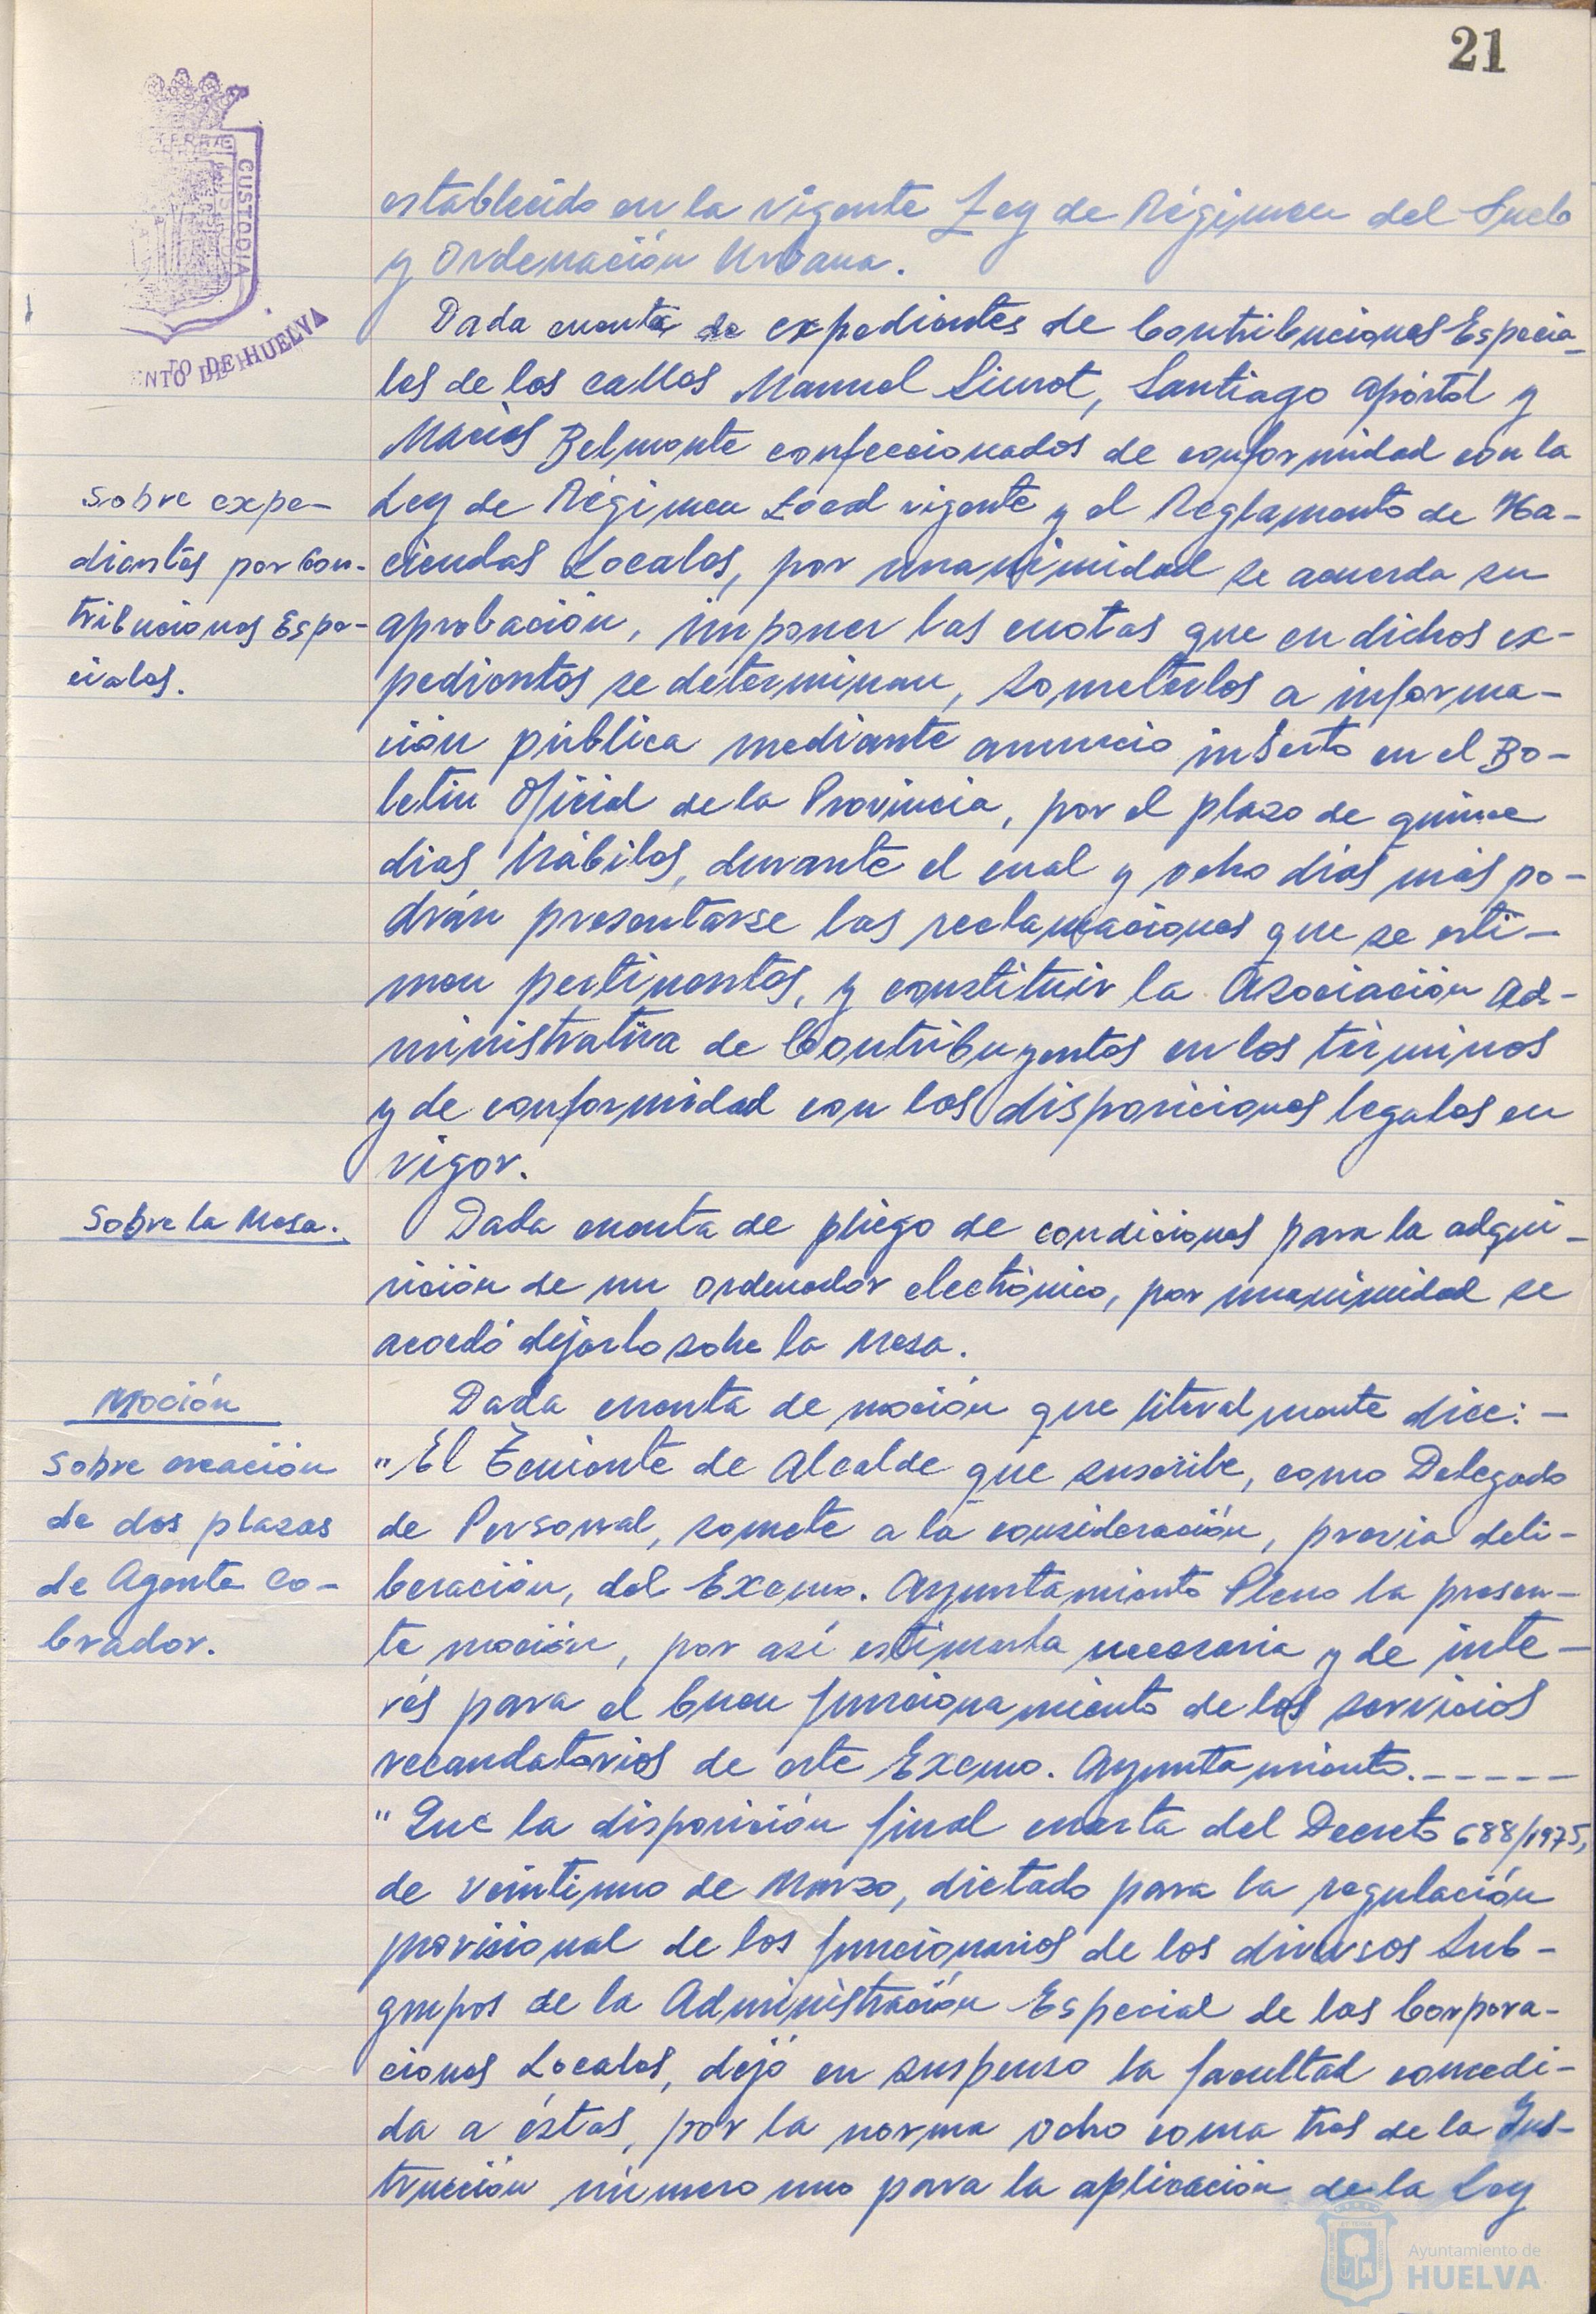 21
CUSTODIA
NTO DE HUELVA
establecido en la vigente Ley de Régimen del Suelo
y Ordenación Urbana.
Dada cuenta de expedientes de Contribuciones Especia-
les de las calles Manuel Siurot, Santiago Apóstol y
Macías Belmonte confeccionados de conformidad con la
Sobre expe-
Ley de Régimen Local vigente y el Reglamento de Ha-
dientes por Con-
ciendas Locales, por unanimidad se acuerda su
tribuciones Espe-
aprobación, imponer las cuotas que en dichos ex-
ciales.
pedientes se determinan, someterlos a informa-
ción pública mediante anuncio inserto en el Bo-
letin Oficial de la Provincia, por el plazo de quince
dias hábiles, durante el cual y ocho dias más po-
drán presentarse las reclamaciones que se esti-
men pertinentes, y constituir la Asociación Ad-
ministrativa de Contribuyentes en los términos
y de conformidad con las disposiciones legales en
vigor.
Sobre la Mesa.
Dada cuenta de pliego de condiciones para la adqui-
sición de un ordenador electrónico, por unanimidad se
acordó dejarlo sobre la Mesa.
Moción
Dada cuenta de moción que literalmente dice: -
Sobre creación
"El Teniente de Alcalde que suscribe, como Delegado
de dos plazas
de Personal, somete a la consideración, previa deli-
de Agente Co-
beración, del Excmo. Ayuntamiento Pleno la presen-
brador.
te moción, por así estimarla necesaria y de inte-
rés para el buen funcionamiento de los servicios
recaudatorios de este Excmo. Ayuntamiento.-----
"Que la disposición final cuarta del Decreto 688/1975,
de veintiuno de Marzo, dictado para la regulación
provisional de los funcionarios de los diversos Sub-
grupos de la Administración Especial de las Corpora-
ciones Locales, dejó en suspenso la facultad concedi-
da a éstas, por la norma ocho coma tres de la Ins-
trucción número uno para la aplicación de la Ley
Ayuntamiento de
HUELVA